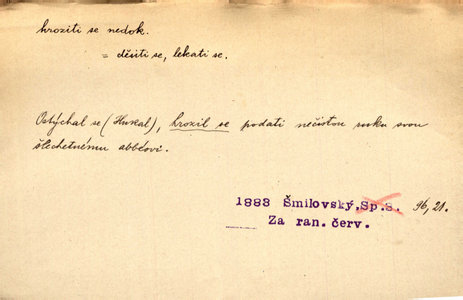 hroziti se nedok.
= děsiti se, lekati se.
Ostýchal se (Hukal), hrozil se podati nečistou ruku svou
šlechetnému abbéovi.
1883 Šmilovský. Sp.8. 96, 21.
Za ran. červ.